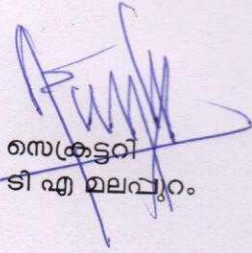 സെക്രട്ടറി
ടി എ മലപ്പുറം